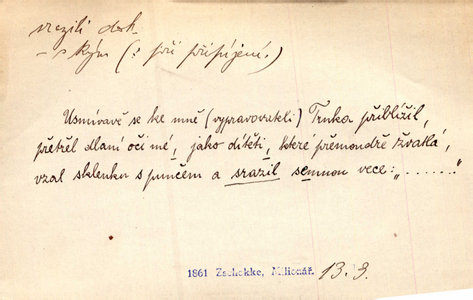 srazili dok.
– s kým (: při připíjení.)
Usmívavě se ke mně (vypravovateli) Trnka přiblížil,
přetřel dlaní oči mé, jako dítěti, které přemoudře žvatlá,
vzal sklenku s punčem a srazil semnou vece: „.......“
1861 Zschokke, Milionář. 13.3.